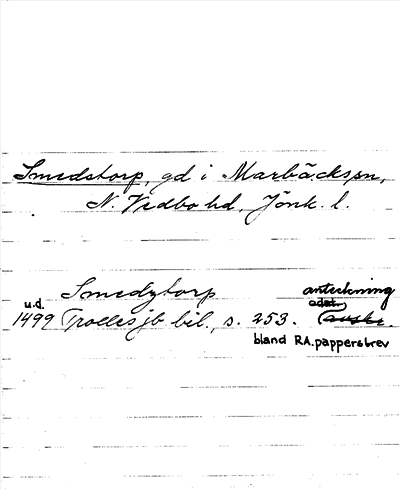 Smedstorp, gd i Marbäcks sn,
N. Vedbo hd, Jönk. l.
Smedztorp anteckning
u.d. odat.
1499 Trolles jb bil., s. 253.
bland RA. pappersbrev